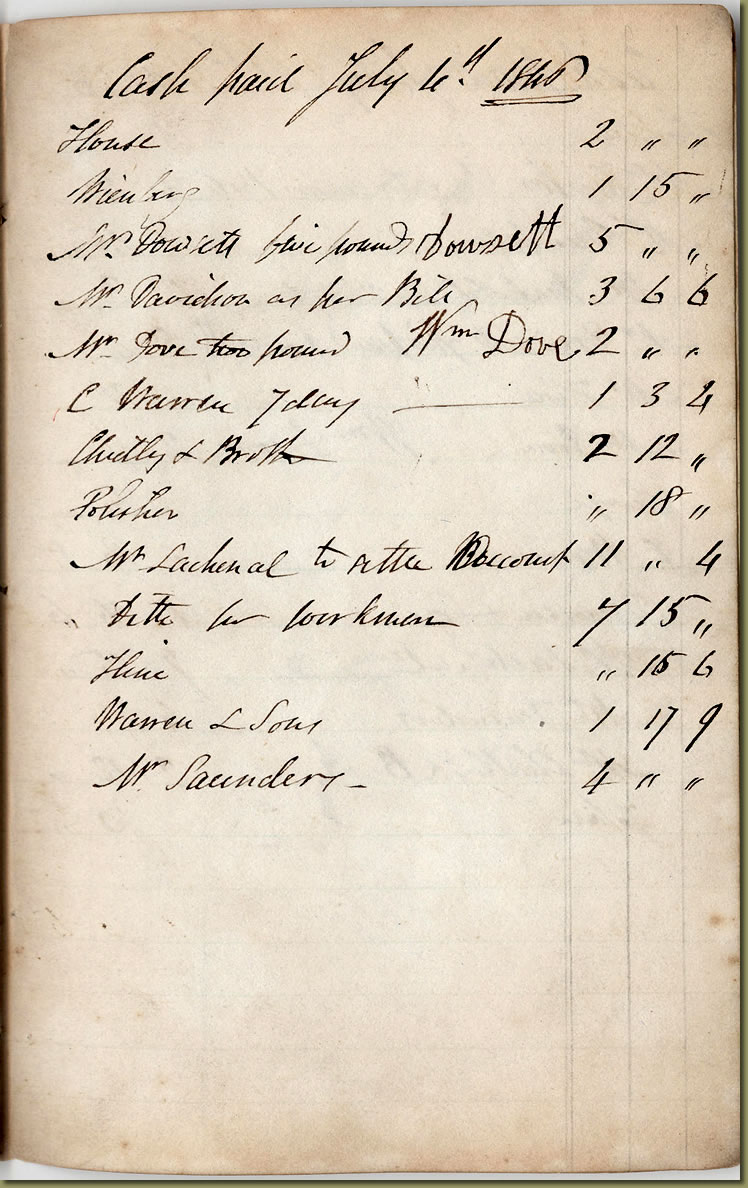 Cash paid July 4th 1846
House 2 " "
Wienberg 1 15 "
Mr Dowsett five pounds Dowsett 5 " "
Mr Davidson as per Bill 3 6 6
Mr Dove two pound Wm Dove 2 " "
C Warren 7 days — 1 3 4
Chidley & Broth 2 12 "
Polisher " 18 "
Mr Lachenal to settle Account 11 " 4
" Ditto for workmen 7 15 "
Hine " 15 6
Warren & Sons 1 17 9
Mr Saunders – 4 " "